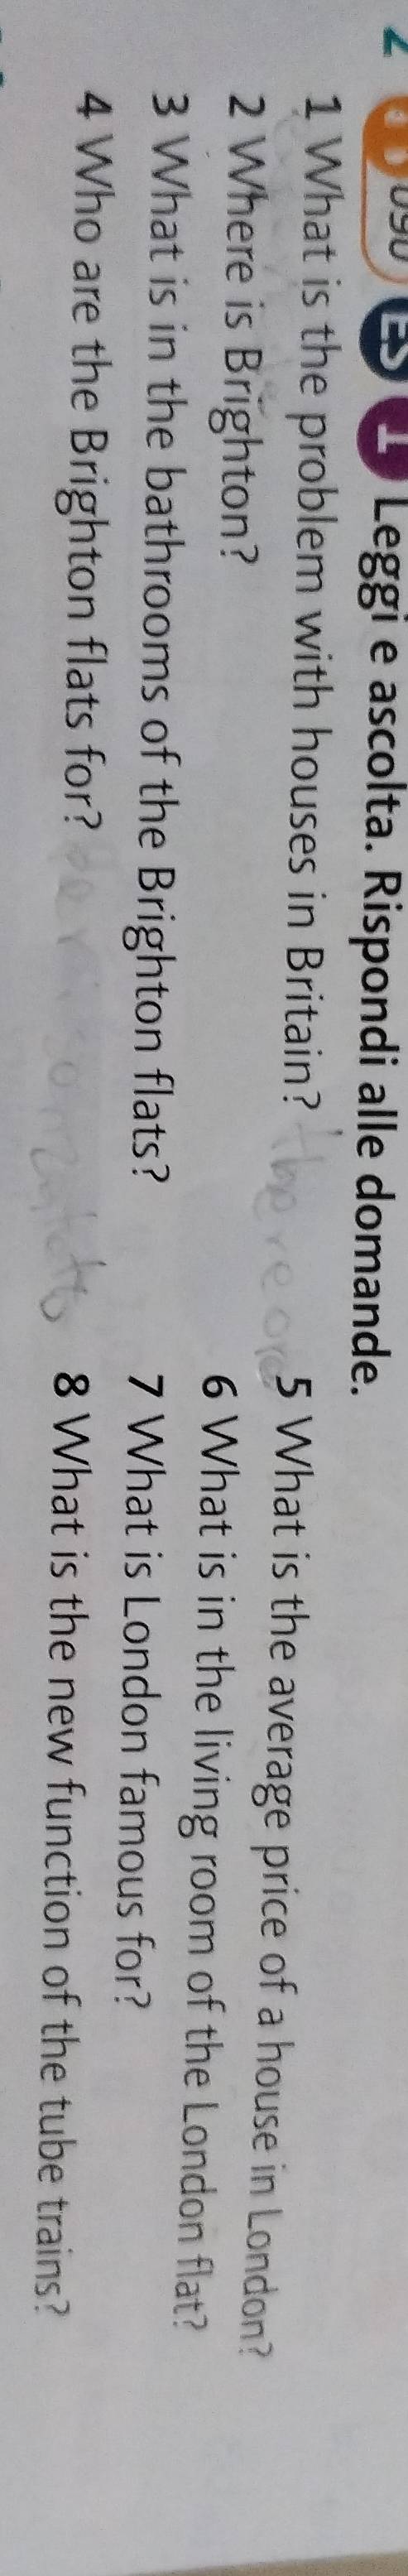 2 090 ES 1 Leggi e ascolta. Rispondi alle domande.
1 What is the problem with houses in Britain?
2 Where is Brighton?
3 What is in the bathrooms of the Brighton flats?
4 Who are the Brighton flats for?
5 What is the average price of a house in London?
6 What is in the living room of the London flat?
7 What is London famous for?
8 What is the new function of the tube trains?